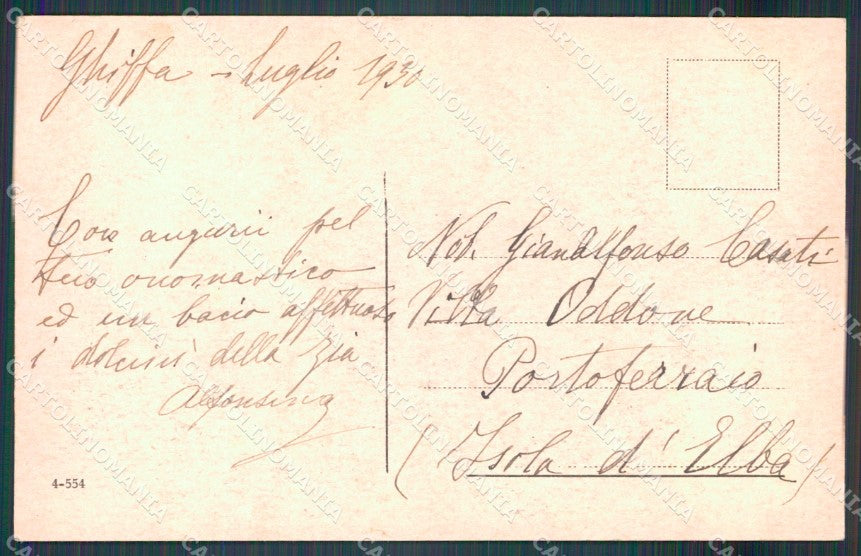 Ghiffa - Luglio 1930
Cora augurii pel
tuo onomastico
ed un bacio affettuoso
i dolcini della zia
Alfonsina
Nob. Gianalfonso Casati
Villa Oddone
Portoferraio
(Isola d'Elba)
4-554
CARTOLINOMANIA